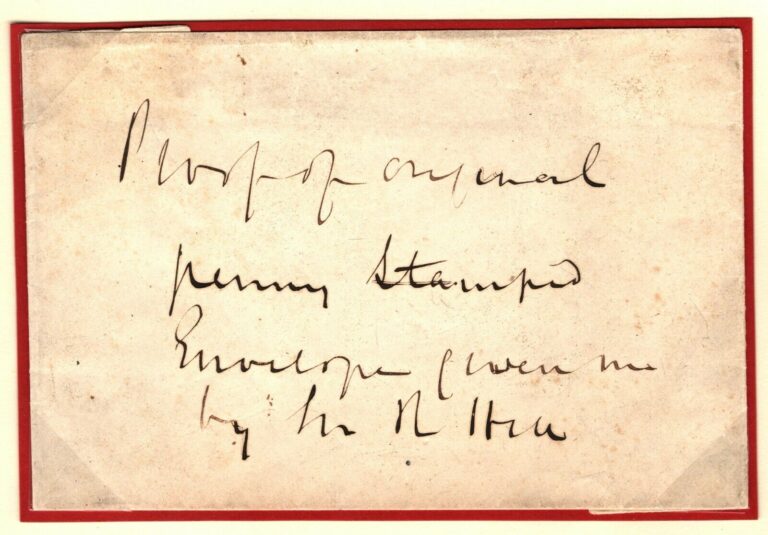 Proof of original
penny Stamped
Envelope given me
by Sir R Hill